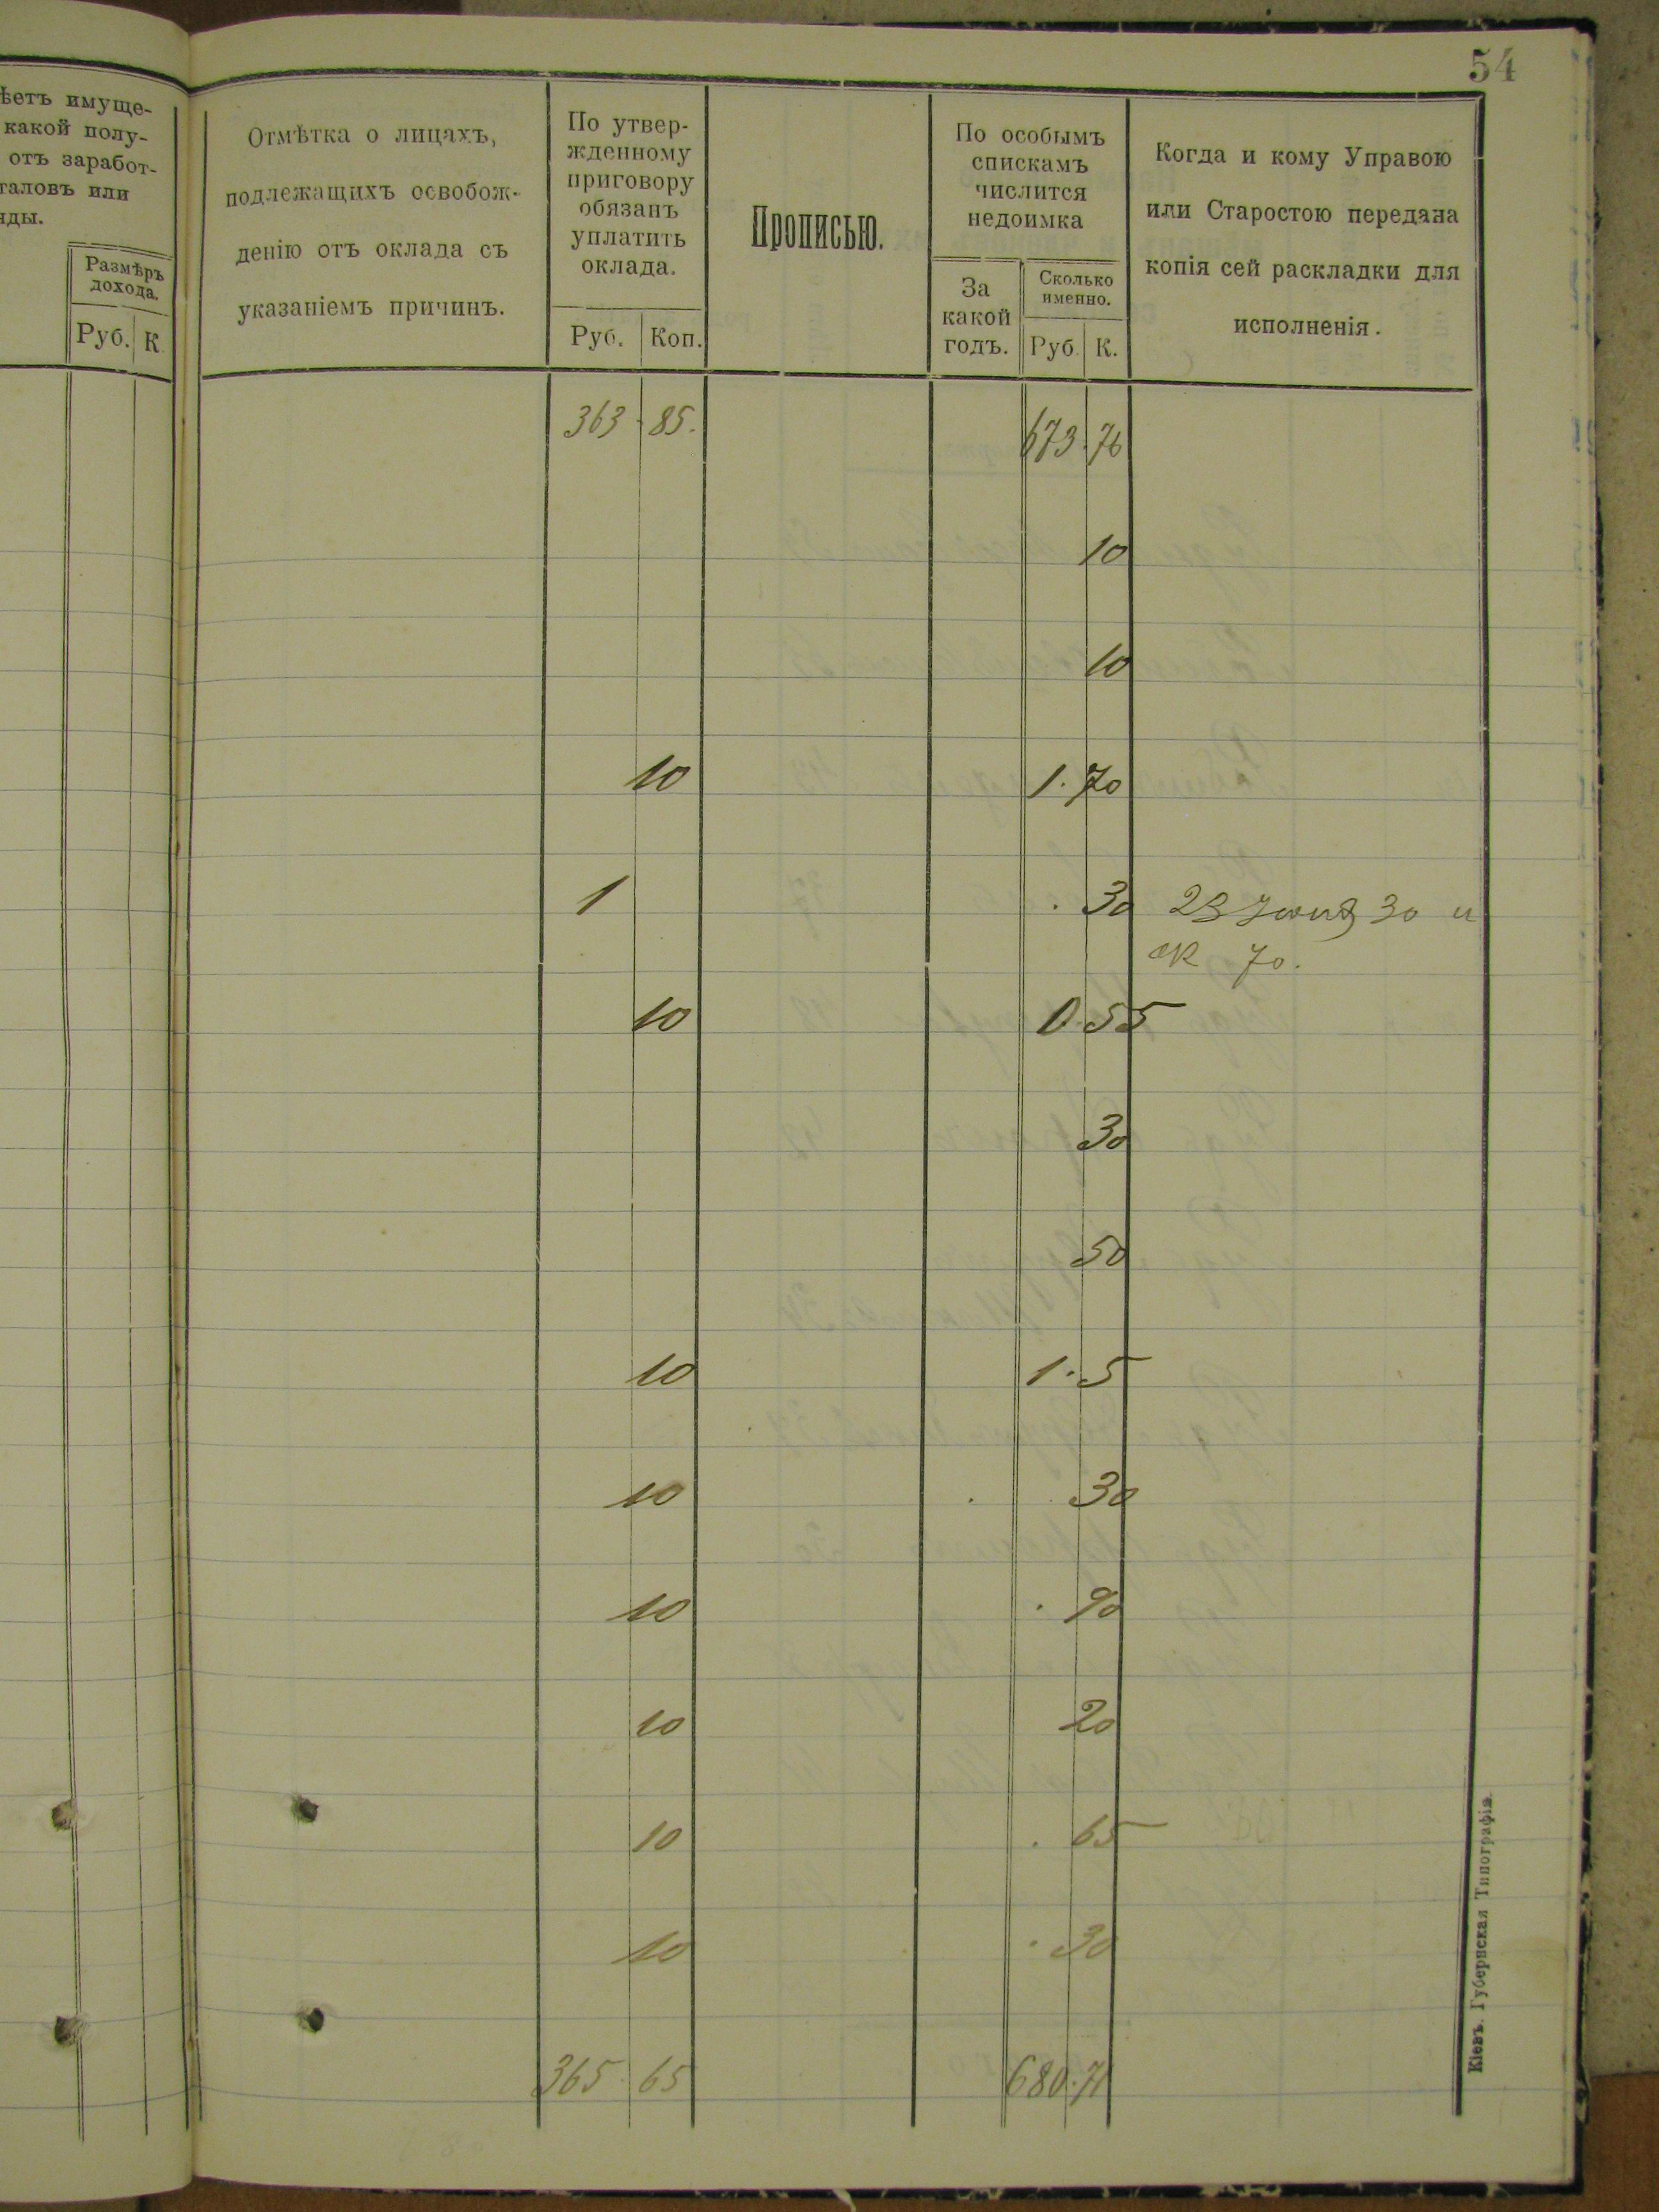 54
ѣетъ имуще-
какой полу-
отъ заработ-
таловъ или
нды.
Размѣръ
дохода.
Руб. К
Отмѣтка о лицахъ,
подлежащихъ освобож-
денію отъ оклада съ
указаніемъ причинъ.
По утвер-
жденному
приговору
обязанъ
уплатить
оклада.
Руб. Коп.
Прописью.
По особымъ
спискамъ
числится
недоимка
За
какой
годъ.
Сколько
именно.
Руб. К.
Когда и кому Управою
или Старостою передана
копія сей раскладки для
исполненія.
363 85. 673.76
10
10
10 1.70
1 . 30 23 30 и
70.
10 0.55
30
50
10 1.5
10 . 30
10 . 90
10 20
10 . 65
10 . 30
365 65 680.71
Кіевъ. Губернская Типографія.